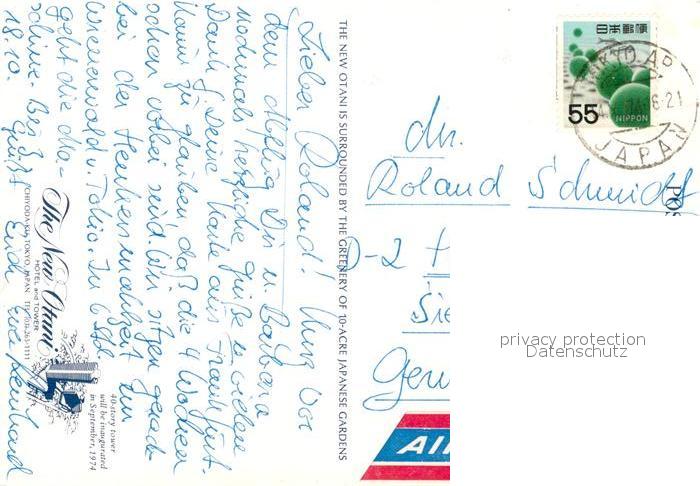 Lieber Roland! Kurz vor
dem Abflug Dir u. Barbara
nochmals herzliche Grüße u. vielen
Dank f. Deine Karte aus Frankfurt.
Kaum zu glauben, daß die 4 Wochen
schon vorbei sind. Wir sitzen gerade
bei der Henkersmahlzeit im
Wienerwald v. Tokio. In 6 Std.
geht die Ma-
schine. Bis
18.10. Grüßt Euch Euer
THE NEW OTANI IS SURROUNDED BY THE GREENERY OF 10-ACRE JAPANESE GARDENS
The New Otani
HOTEL and TOWER
CHIYODA-KU, TOKYO, JAPAN TEL (03)-265-1111
40-story tower
will be inaugurated
in September, 1974
日本郵便
55
NIPPON
TOKYO AP
JAPAN
Roland Schmidt
POS
D-2
Sie
Ger
AI
privacy protection
Datenschutz